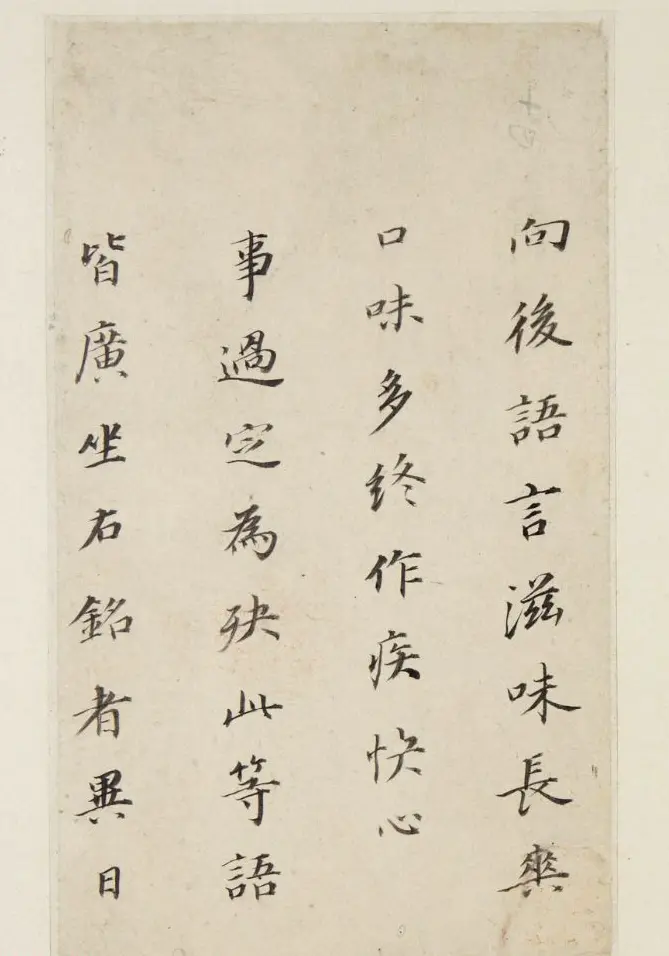 向後語言滋味長爽
口味多終作疾快心
事過定為殃此等語
皆廣坐右銘者異日